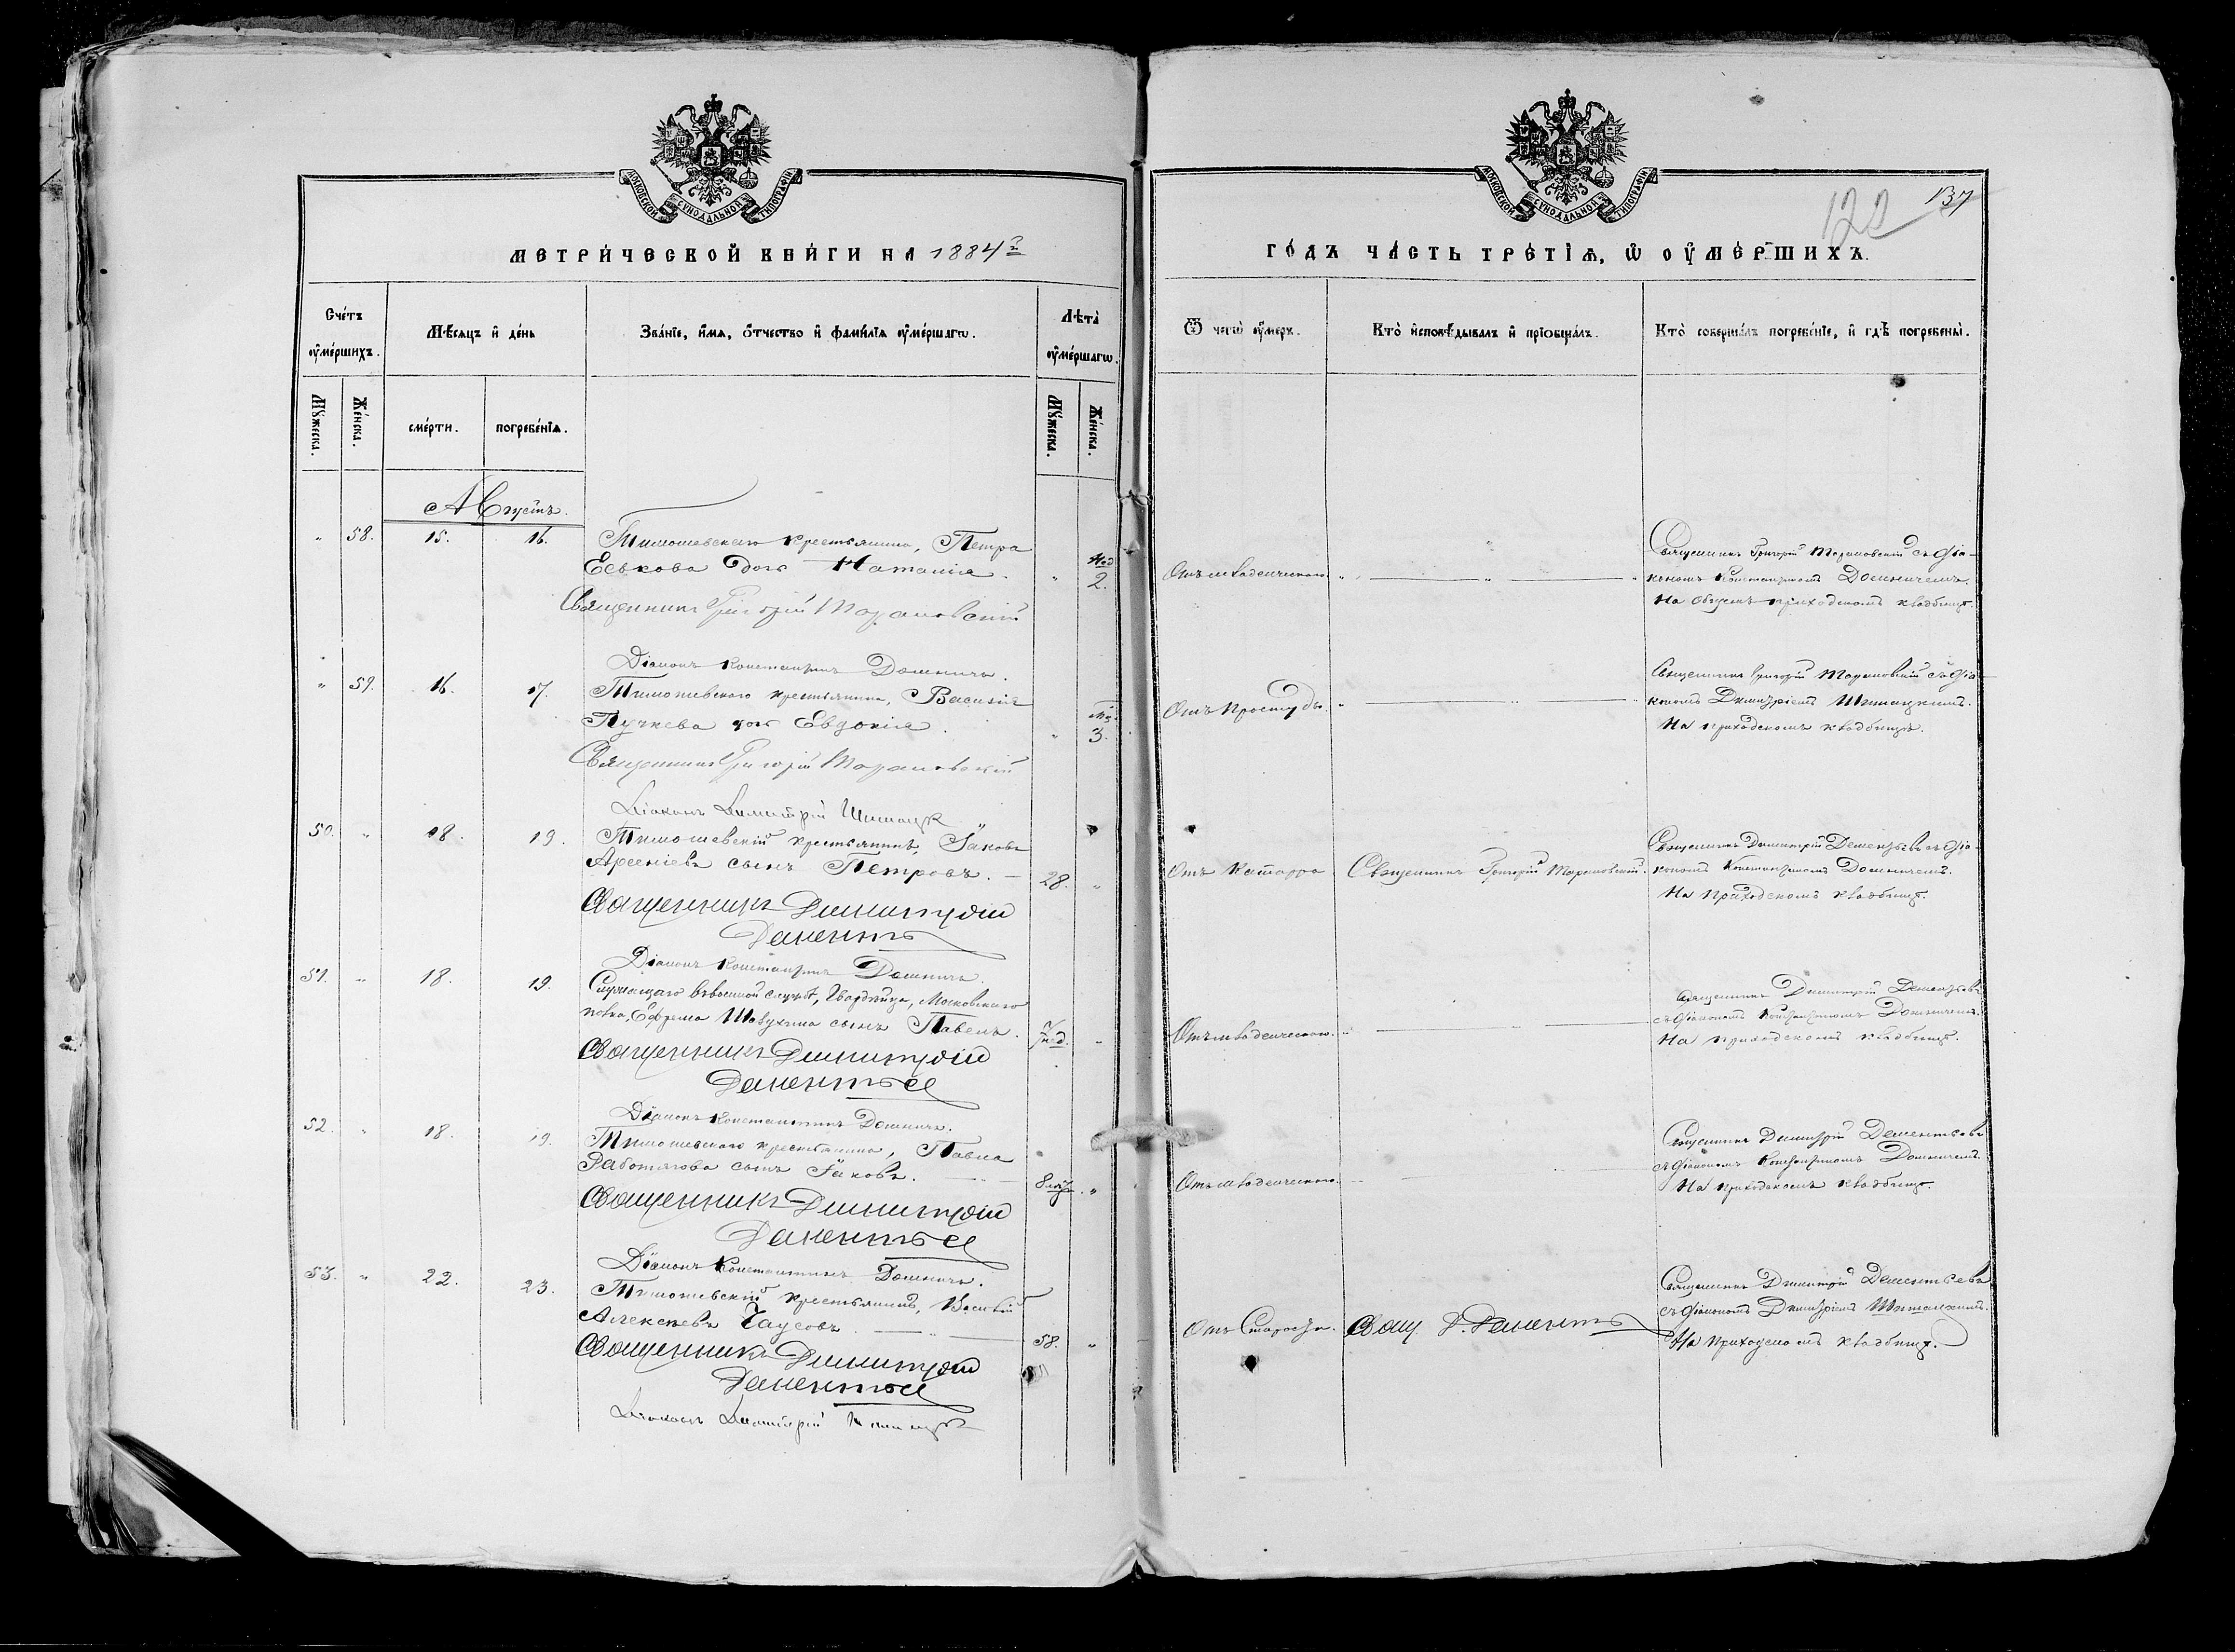 МОСКОВСКОЙ СѴНОДАЛЬНОЙ ТИПОГРАФІИ
МЕТРИ́ЧЕСКОЙ КНИ́ГИ НА 1884й
Сче́тъ оу҆ме́ршихъ.
Мѣ́сяцъ и҆ де́нь
Зва́нїе, и҆́мя, ѻ҆́тчество и҆ фами́лїя оу҆ме́ршагѡ.
Лѣта̀ оу҆ме́ршагѡ.
Мꙋ́жеска.
Же́нска.
сме́рти.
погребе́нїѧ.
Мꙋ́жеска.
Же́нска.
Августъ.
" 58. 15. 16. Тимошевскаго крестьянина, Петра
Еськова дочь Наталія. " нед 2.
Священникъ Григорій Марановскій
Діаконъ Константинъ Домничъ.
" 59. 16. 17. Тимошевского крестьянина, Василія
Пучкева дочь Евдокія. " мц. 3.
Священникъ Григорій Марановскій
Діаконъ Димитрій
50. " 18. 19. Тимошевскій крестьянинъ, Іаковъ
Арсеніевъ сынъ Петровъ. — 28. "
Священникъ Димитрій
Дементь
Діаконъ Константинъ Домничъ.
51. " 18. 19. Служащаго въ военной службѣ, Московскаго
полка, Ефрема сынъ Павелъ. нед. "
Священникъ Димитрій
Дементьев
Діаконъ Константинъ Домничъ.
52. " 18. 19. Тимошевскаго крестьянина, Павла
Работягова сынъ Іаковъ. 8 "
Священникъ Димитрій
Дементьев
Діаконъ Константинъ Домничъ.
53. " 22. 23. Тимошевскій крестьянинъ, Василій
Алексѣевъ Чаусовъ 58. "
Священникъ Димитрій
Дементьев
Діаконъ Димитрій
МОСКОВСКОЙ СѴНОДАЛЬНОЙ ТИПОГРАФІИ
122 137
ГО́ДЪ ЧА́СТЬ ТРЕ́ТЇѦ, Ѡ҆ ОУ҆МЕ́РШИХЪ.
Ѿ чегѡ̀ оу҆́меръ.
Кто̀ и҆сповѣ́дывалъ и҆ прїѻбща́лъ.
Кто̀ соверша́лъ погребе́нїе, и҆ гдѣ̀ погребены̀.
Отъ младенческаго " "
Священникъ Григорій Марановскій съ діа-
кономъ Константиномъ Домничемъ.
На общемъ приходскомъ кладбищѣ.
Отъ простуды. " "
Священникъ Григорій Марановскій съ діа-
кономъ Димитріемъ
На приходскомъ кладбищѣ.
Отъ катарра Священникъ Григорій Марановскій.
Священникъ Димитрій Дементьевъ съ діа-
кономъ Константиномъ Домничемъ.
На приходскомъ кладбищѣ.
Отъ младенческаго.
Священникъ Димитрій Дементьевъ
съ діакономъ Константиномъ Домничемъ.
На приходскомъ кладбищѣ.
Отъ младенческаго.
Священникъ Димитрій Дементьевъ
съ діакономъ Константиномъ Домничемъ.
На приходскомъ кладбищѣ.
Отъ старости. Свящ. Д. Дементь
Священникъ Димитрій Дементьевъ
съ діакономъ Димитріемъ
На приходскомъ кладбищѣ.